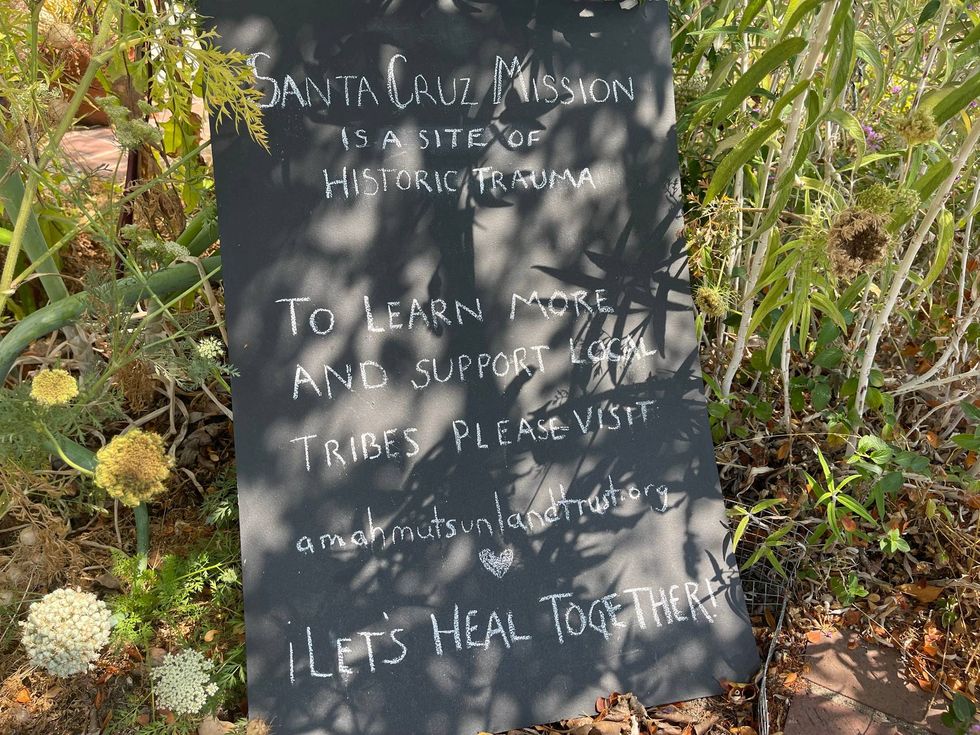 SANTA CRUZ MISSION
IS A SITE OF
HISTORIC TRAUMA
TO LEARN MORE
AND SUPPORT LOCAL
TRIBES PLEASE VISIT
amahmutsunlandtrust.org
¡LET'S HEAL TOGETHER!